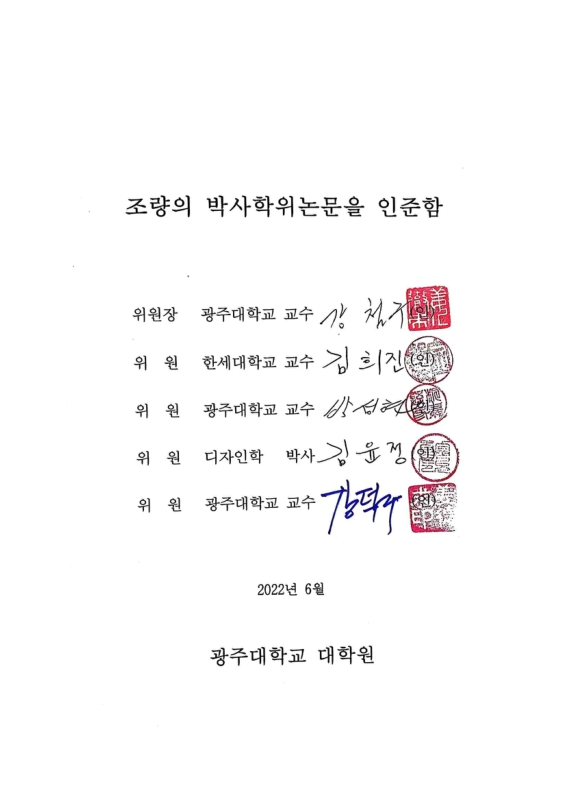 조량의 박사학위논문을 인준함
위원장 광주대학교 교수 강 첨구 (인)
위 원 한세대학교 교수 김희진 (인)
위 원 광주대학교 교수 박성현 (인)
위 원 디자인학 박사 김윤정 (인)
위 원 광주대학교 교수 (인)
2022년 6월
광주대학교 대학원